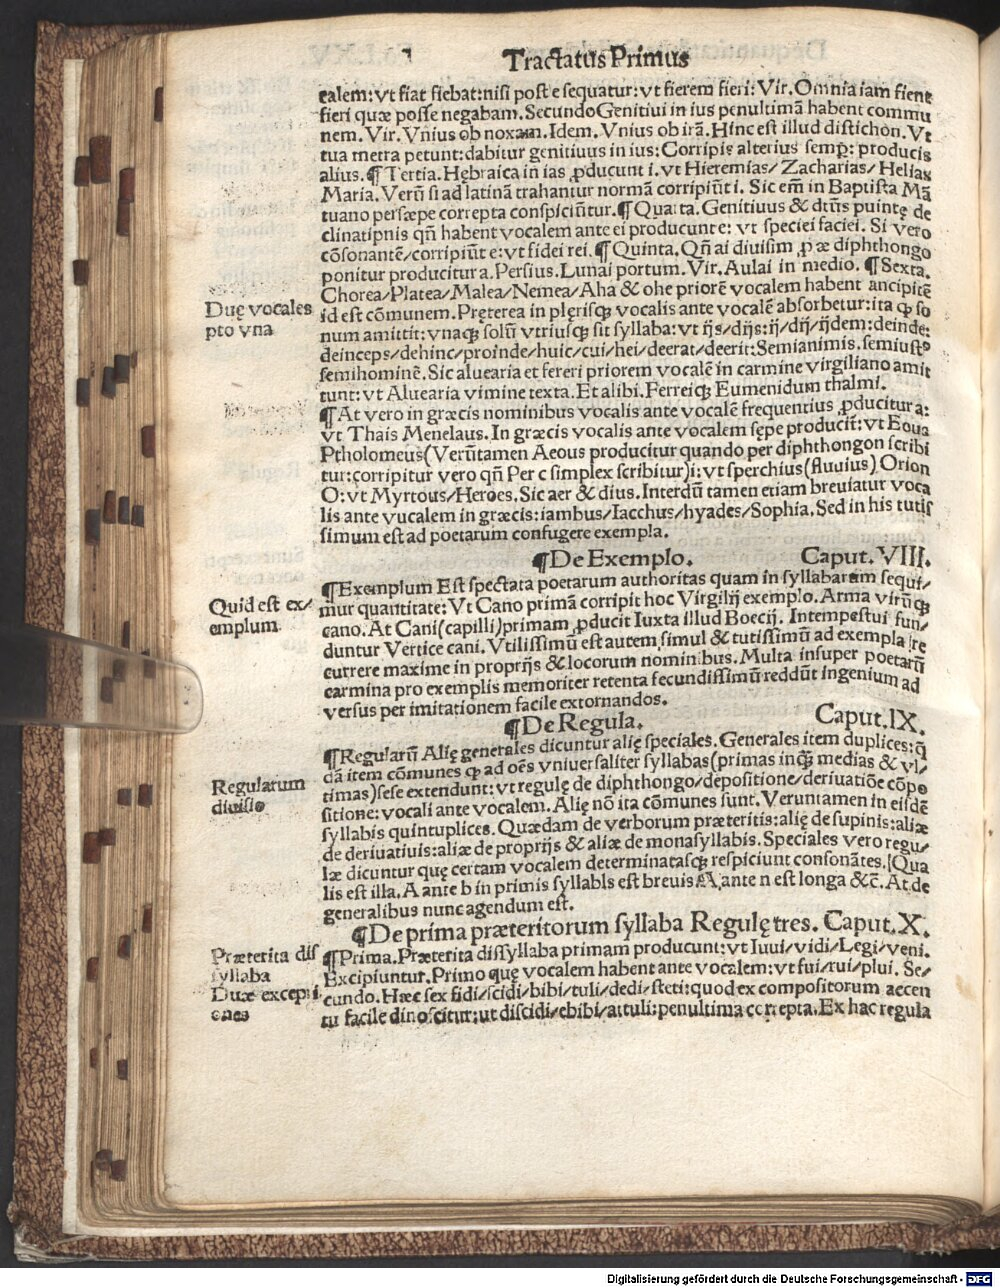 Tractatus Primus
calem: vt fiat fiebat: nisi post e sequatur: vt fierem fieri: Vir. Omnia iam fient
fieri quæ posse negabam. Secundo Genitiui in ius penultimā habent commu
nem. Vir. Vnius ob noxam. Idem. Vnius ob irā. Hinc est illud distichon. Vt
tua metra petunt: dabitur genitiuus in ius: Corripis alterius semp̱: producis
alius. ¶ Tertia. Hebraica in ias ꝓducunt i. vt Hieremias/ Zacharias/ Helias
Maria. Verū si ad latinā trahantur normā corripiūt i. Sic em̄ in Baptista Mā
tuano persæpe correpta conspiciūtur. ¶ Quarta. Genitiuus & dtūs puintę de
clinatipnis qn̄ habent vocalem ante ei producunt e: vt speciei faciei. Si vero
cōsonantē/ corripiūt e: vt fidei rei. ¶ Quinta. Qn̄ ai diuisim ꝓ æ diphthongo
ponitur producitur a. Persius. Lunai portum. Vir. Aulai in medio. ¶ Sexta.
Chorea/ Platea/ Malea/ Nemea/ Aha & ohe priorē vocalem habent ancipitē
Duę vocales
pto vna
id est cōmunem. Pręterea in plerisqꝫ vocalis ante vocalē absorbetur: ita ꝙ so
num amittit: vnaqꝫ solū vtriusqꝫ sit syllaba: vt ijs/ dijs: ij/ dij/ ijdem: deinde:
deinceps/ dehinc/ proinde/ huic/ cui/ hei/ deerat/ deerit: Semianimis. semiustꝰ
semihominē. Sic aluearia et fereri priorem vocalē in carmine virgiliano amit
tunt: vt Aluearia vimine texta. Et alibi. Ferreiqꝫ Eumenidum thalmi.
¶ At vero in græcis nominibus vocalis ante vocalē frequentius ꝓducitur a:
vt Thais Menelaus. In græcis vocalis ante vocalem sępe producit: vt Eoua
Ptholomeus (Verūtamen Aeous producitur quando per diphthongon scribi
tur: corripitur vero qn̄ Per c simplex scribitur) i: vt sperchius (fluuius) Orion
O: vt Myrtous/ Heroes. Sic aer & dius. Interdū tamen etiam breuiatur voca
lis ante vucalem in græcis: iambus/ Iacchus/ hyades/ Sophia. Sed in his tutis
simum est ad poetarum confugere exempla.
¶ De Exemplo. Caput. VIII.
Quid est ex/
emplum
¶ Exemplum Est spectata poetarum authoritas quam in syllabarum sequi/
mur quantitate: Vt Cano primā corripit hoc Virgilij exemplo. Arma virūqꝫ
cano. At Cani (capilli) primam ꝓducit Iuxta illud Boecij. Intempestui fun/
duntur Vertice cani. Vtilissimū est autem simul & tutissimū ad exempla re
currere maxime in proprijs & locorum nominibus. Multa insuper poetarū
carmina pro exemplis memoriter retenta fecundissimū reddūt ingenium ad
versus per imitationem facile extornandos.
¶ De Regula. Caput. IX.
Regularum
diuisio
¶ Regularū Alię generales dicuntur alię speciales. Generales item duplices: q̄
dā item cōmunes ꝙ ad oēs vniuersaliter syllabas (primas inqꝫ medias & vl/
timas) sese extendunt: vt regulę de diphthongo/ depositione/ deriuatiōe cōpo
sitione: vocali ante vocalem. Alię nō ita cōmunes sunt. Veruntamen in eisdē
syllabis quintuplices. Quædam de verborum præteritis: alię de supinis: aliæ
de deriuatiuis: aliæ de proprijs & aliæ de monasyllabis. Speciales vero regu/
læ dicuntur quę certam vocalem determinatasqꝫ respiciunt consonātes. Qua
lis est illa. A ante b in primis syllabls est breuis A ante n est longa &c̄. At de
generalibus nunc agendum est.
¶ De prima præteritorum syllaba Regulę tres. Caput. X.
Præterita dis
syllaba
Duæ excepti
ones
¶ Prima. Præterita dissyllaba primam producunt: vt Iuui/ vidi/ Legi/ veni.
Excipiuntur. Primo quę vocalem habent ante vocalem: vt fui/ rui/ plui. Se/
cundo. Hæc sex fidi/ scidi/ bibi/ tuli/ dedi/ steti: quod ex compositorum accen
tu facile dinoscitur: ut discidi/ ebibi/ attuli: penultima correpta. Ex hac regula
Digitalisierung gefördert durch die Deutsche Forschungsgemeinschaft - DFG